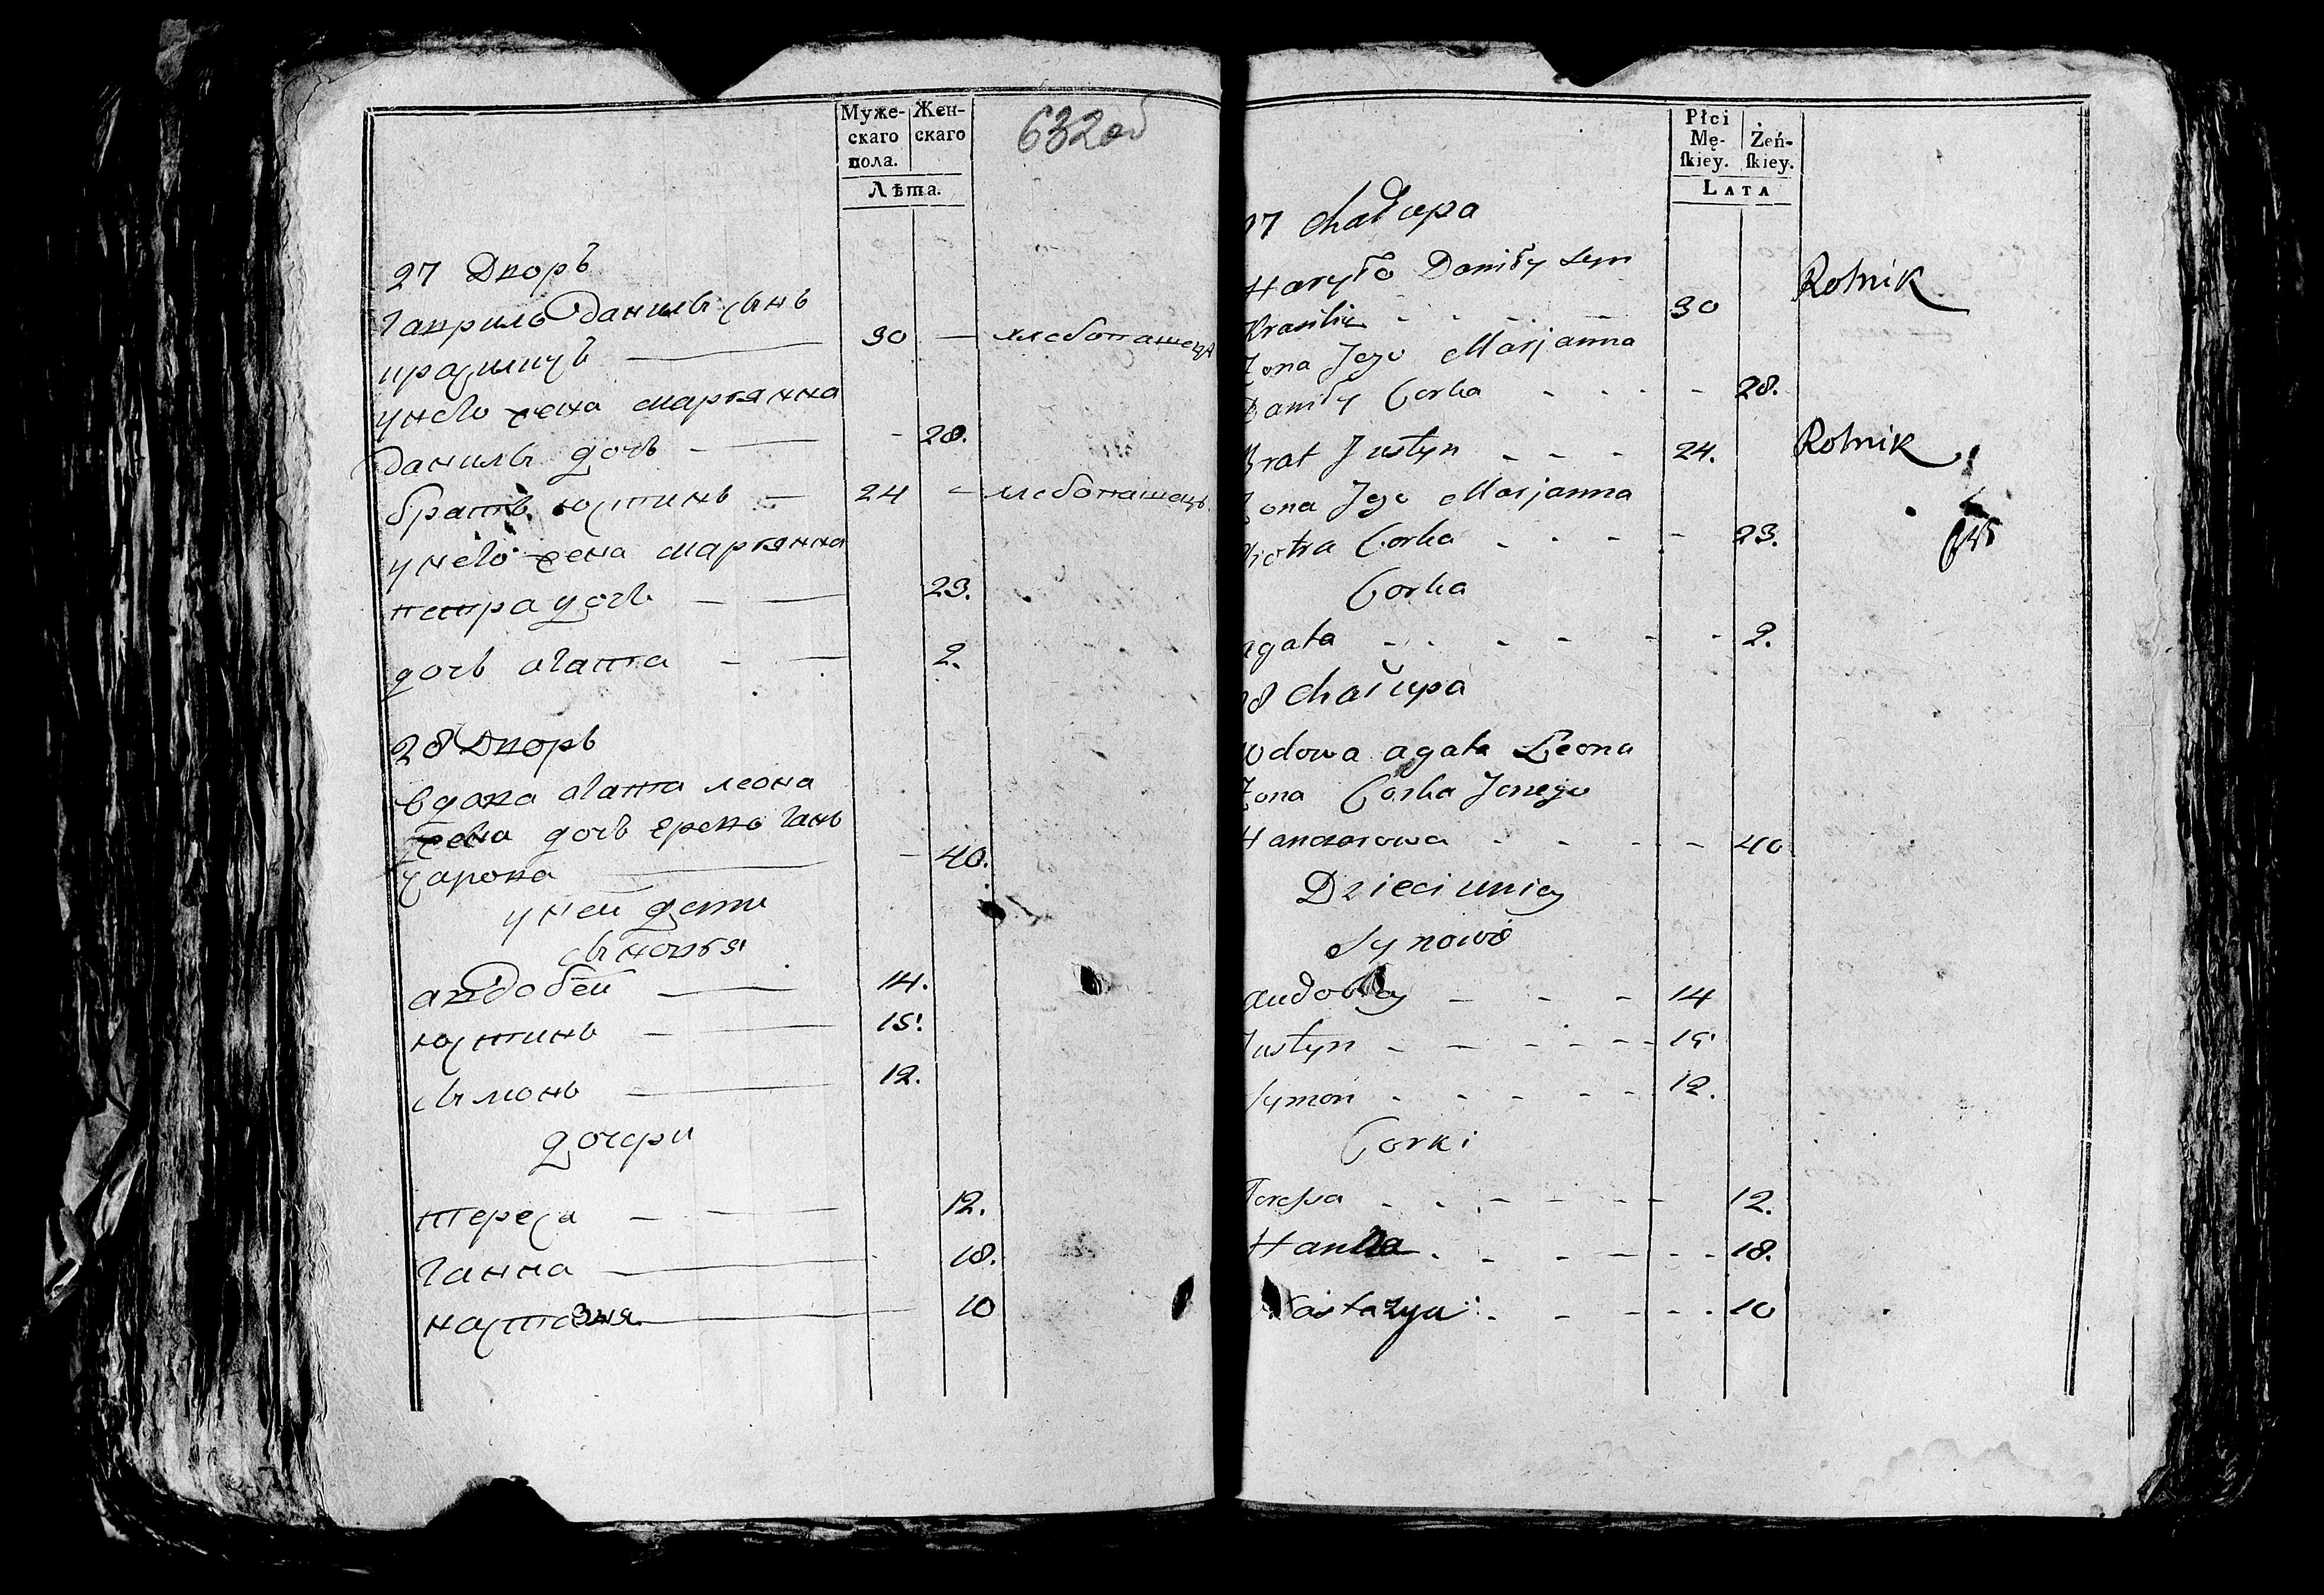 Муже-
скаго
пола.
Жен-
скаго
Лѣта.
632об
27 Дворъ
Гаврилъ Данилы сынъ
30 — хлебопашецъ
у него жена Марьянна
Данилы дочь — — - 28.
братъ Юстинъ — 24 - хлебопашецъ
у него жена Марьянна
Петра дочь — — 23.
дочь Агата — — 2.
28 Дворъ
вдова Агата Леона
жена дочь
— - 40.
у ней дети
сыновья
Авдобей — — 14.
Юстинъ — — 15.
Сымонъ — 12.
дочери
Тереса — — — 12.
Ганна — 18.
10
Płci
Mę-
ſkiey.
Żeń-
ſkiey.
LATA
27 Chałupa
Haryło Daniły Syn
30 Rolnik
Żona Jego Marjanna
Daniły Corka - - - - 28.
Brat Justyn - - - 24. Rolnik
Żona Jego Marjanna
Piotra Corka - - - - 23.
Corka
agata - - - - - - 2.
28 Chałupa
Wdowa agata Leona
Żona Corka
- - - - 40
Dzieci u niey
Synowie
- - - 14
Justyn - - - - - - 15
Symon - - - - - - 12.
Corki
Teressa - - - - - - 12.
Hanna - - - - - - 18.
Nastazya - - - - - 10